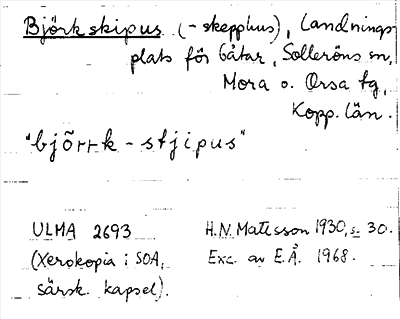 Björkskipus (-skepphus), Landnings-
plats för båtar, Solleröns sn,
Mora o. Orsa tg,
Kopp. län.
"björrk-stjipus"
ULMA 2693
(Xerokopia i SOA,
särsk. kapsel).
H.N. Matsson 1930, s. 30.
Exc. av E.Å. 1968.